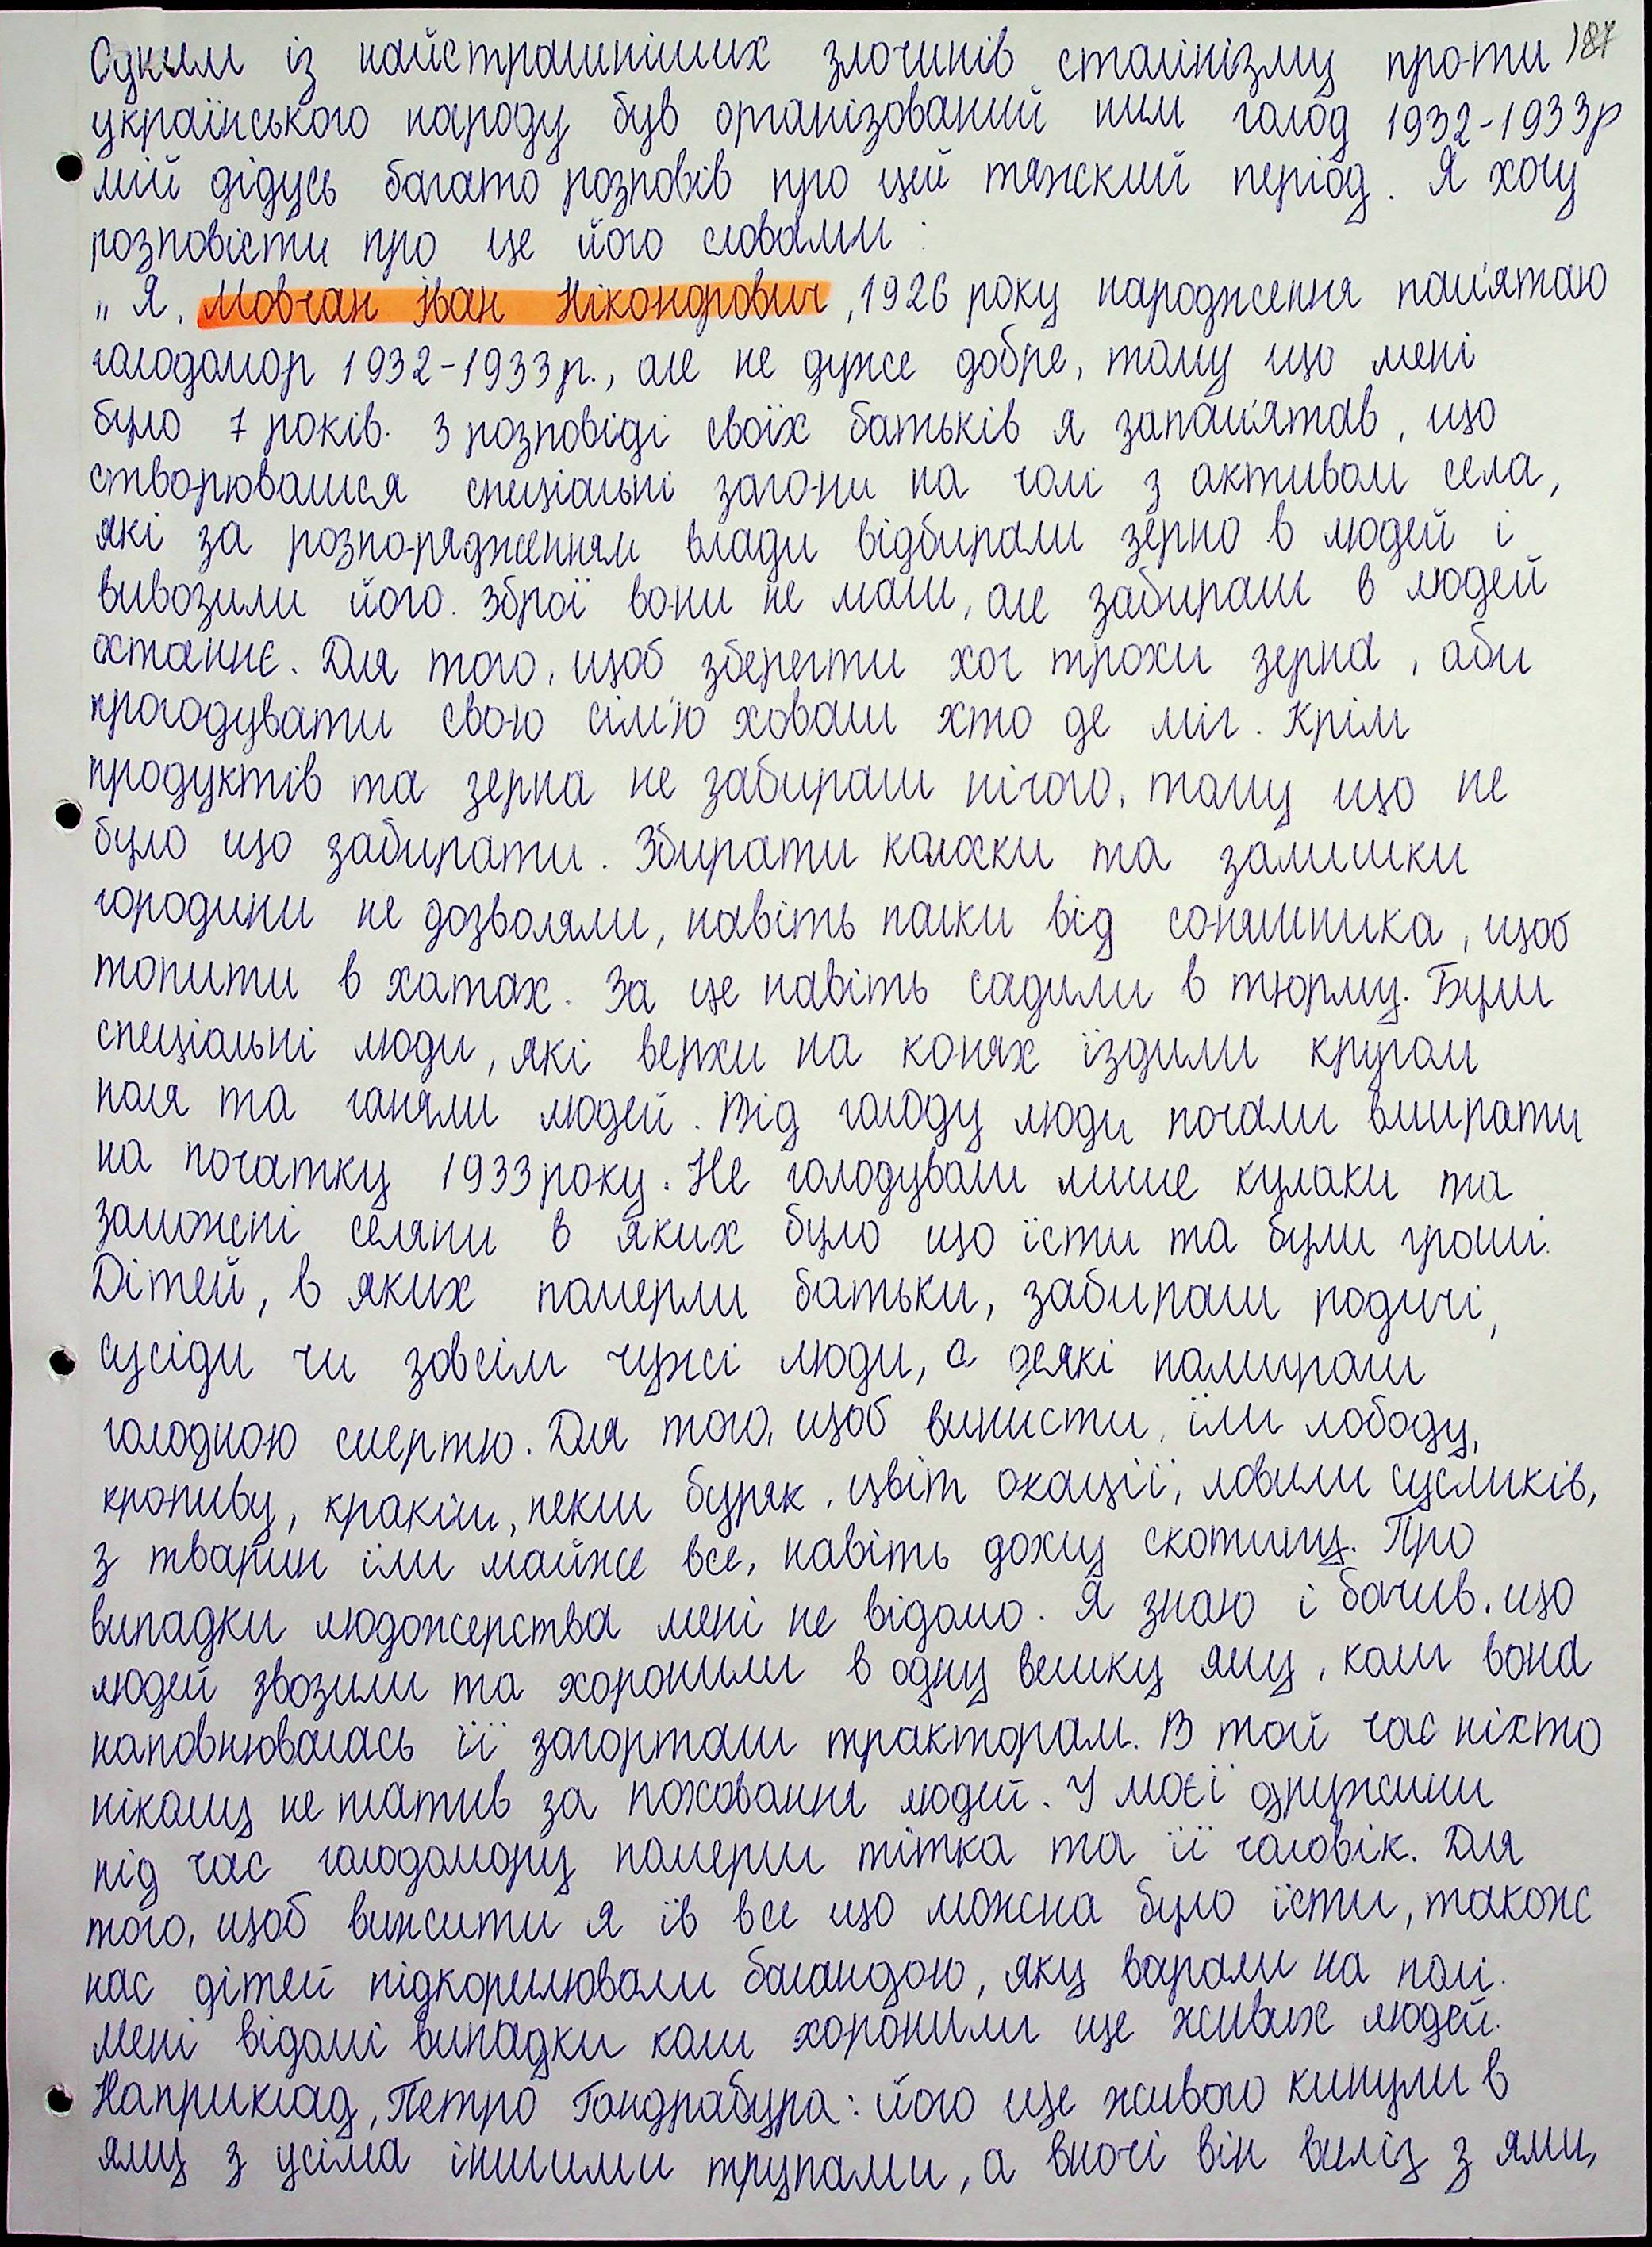 Одним із найстрашніших злочинів сталінізму проти 187
українського народу був організований ним голод 1932-1933р
мій дідусь багато розповів про цей тяжский період. Я хочу
розповісти про це його словами:
„ Я, Мовчан Іван Ніконорович, 1926 року народження пам'ятаю
голодомор 1932-1933р., але не дуже добре, тому що мені
було 7 років. З розповіді своїх батьків я запам'ятав, що
створювалися спеціальні загони на чолі з активом села,
які за розпорядженням влади відбирали зерно в людей і
вивозили його. Зброї вони не мали, але забирали в людей
останнє. Для того, щоб зберегти хоч трохи зерна, аби
прогодувати свою сім'ю ховали хто де міг. Крім
продуктів та зерна не забирали нічого, тому що не
було що забирати. Збирати колоски та залишки
городини не дозволяли, навіть палки від соняшника, щоб
топити в хатах. За це навіть садили в тюрму. Були
спеціальні люди, які верхи на конях їздили кругом
поля та ганяли людей. Від голоду люди почали вмирати
на початку 1933 року. Не голодували лише кулаки та
заможні селяни в яких було що їсти та були гроші.
Дітей, в яких померли батьки, забирали родичі,
сусіди чи зовсім чужі люди, а деякі помирали
голодною смертю. Для того, щоб вижисти, їли лободу,
кропиву, кракіли, пекли буряк, цвіт окації, ловили сусликів,
з тварин їли майже все, навіть дохлу скотину. Про
випадки людожерства мені не відомо. Я знаю і бачив, що
людей звозили та хоронили в одну велику яму, коли вона
наповнювалась її загортали трактором. В той час ніхто
нікому не платив за поховання людей. У моєї дружини
під час голодомору померли тітка та її чоловік. Для
того, щоб вижити я їв все що можна було їсти, також
нас дітей підкормлювали баландою, яку варили на полі.
Мені відомі випадки коли хоронили ще живих людей.
Наприклад, Петро Гондрабура: його ще живого кинули в
яму з усіма іншими трупами, а вночі він виліз з ями,